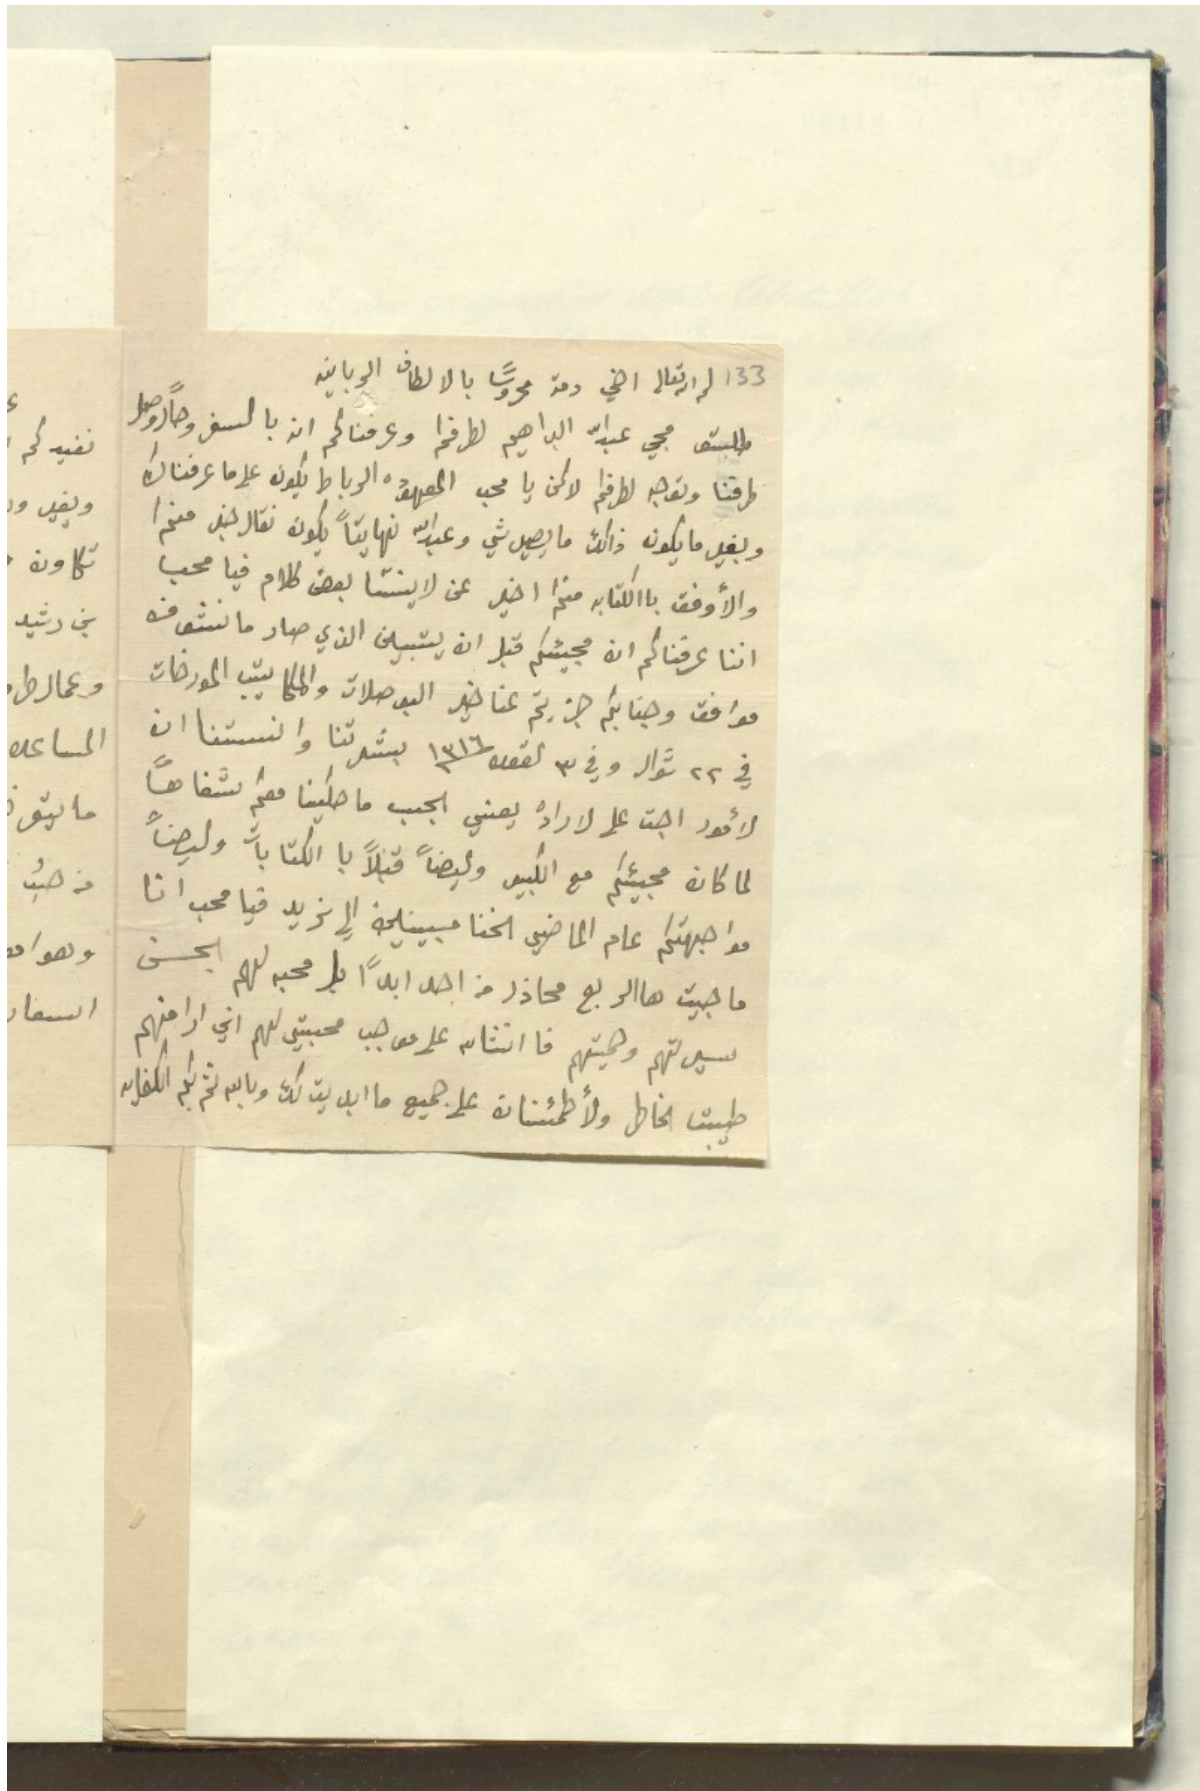 133
لم الله تعالى اخي دمت محروسًا بالالطاف الربانيه
طلبتو مجي عبدالله البراهيم لطرفكم وعرفناكم انه بالسفر وحالًا وصل
طرفنا وتوجه لطرفكم لاكن يا محب المعهود الرباط يكون على ما عرفناك
وبغير ما يكون ذالك ما يصير شي وعبدالله نهايتًا يكون نقال خبر منكم
والأوفق باالكتابه منكم اخير عن لا ينشا بعض كلام فيا محب
اننا عرفناكم ان مجيئكم قبل ان يتبين الذي صار ما نشوفه
موافق وجنابكم جزيتم عنا خير البوصلات والمكاتيب المورخات
في ٢٢ شوال وفي ٣ القعده ١٣١٦ بشرتنا وانستنا ان
لأمور اجت على لاراده يعني الجيب ما حكينا معكم شفاهًا
لما كان مجيئكم مع الكبير وايضًا قبلًا با الكتابات وايضًا
مواجهتكم عام الماضي احنا مبينين الى نريد فيا محب انا
ما جيت هاالربع محاذر من احد ابدًا بل محبه لهم لحسن
سيرتهم وحميتهم فا انشالله على موجب محبتي لهم اني ارا منهم
طيبت الخاطر ولأطمئنان على جميع ما ابديت لك وبالله ثم بكم الكفايه
نفيدكم
وبغير
تكاون
بن رشيد
وعمال
المساعده
من حيث
وهو